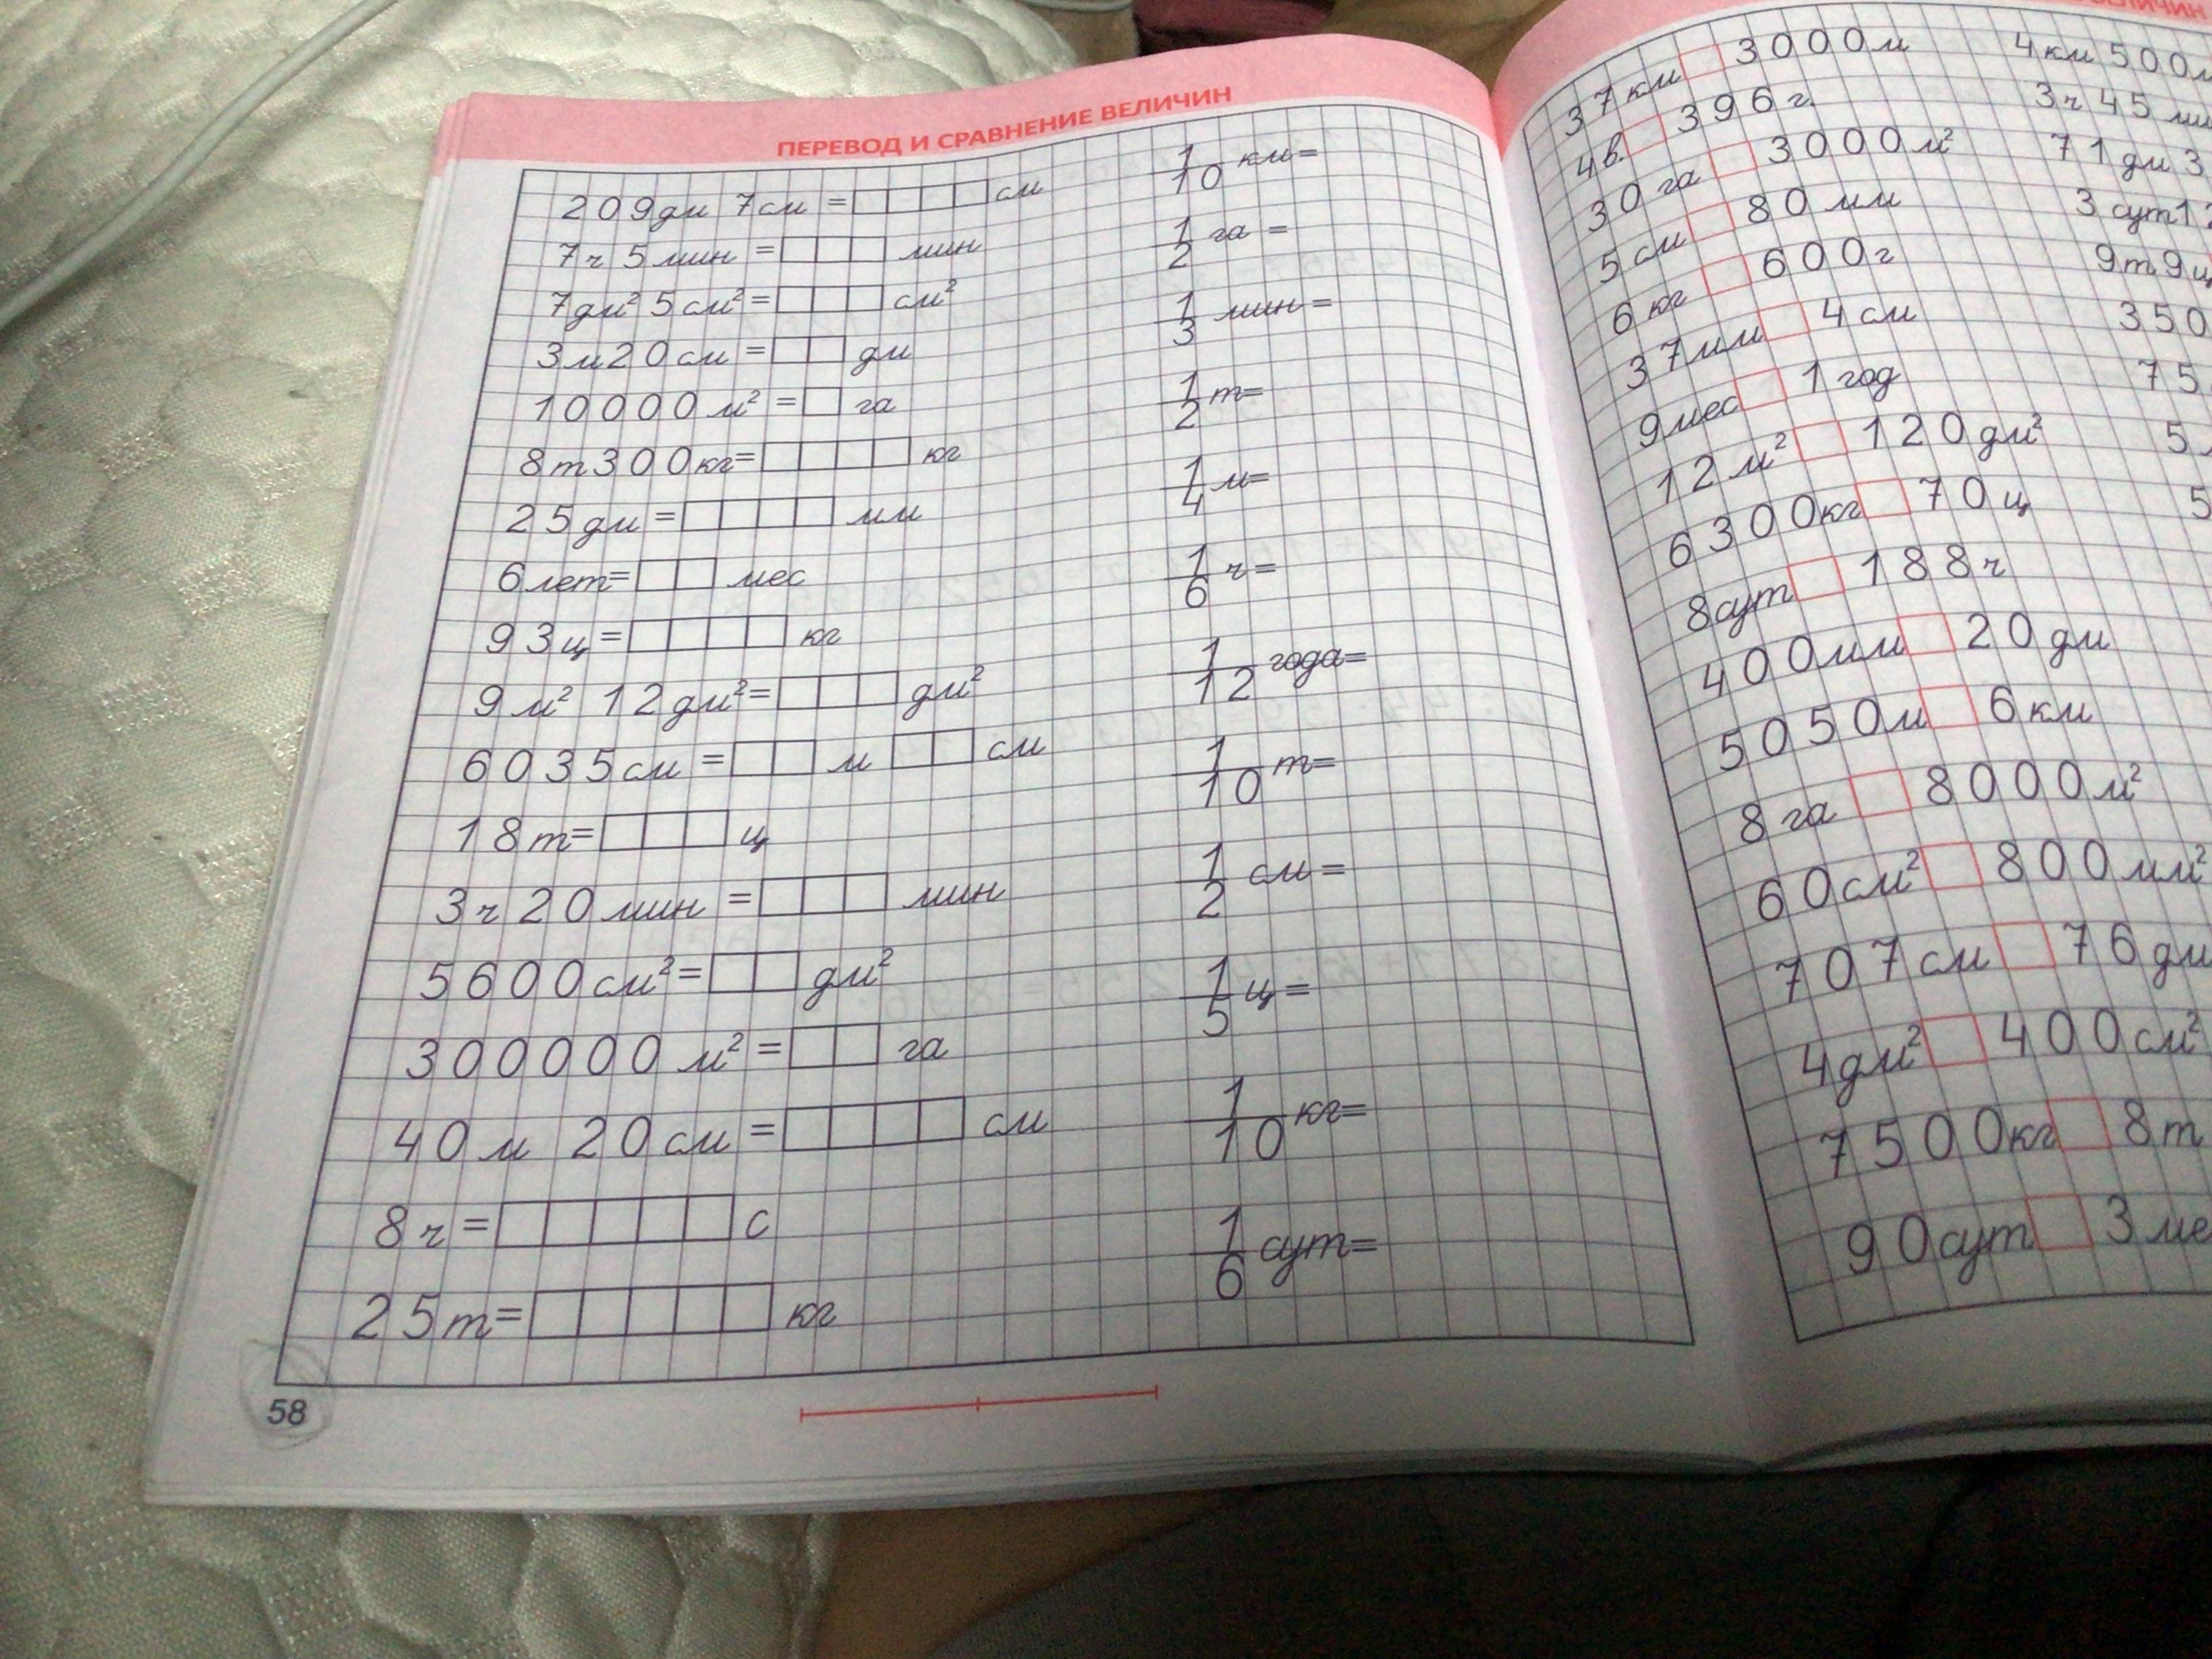 ПЕРЕВОД И СРАВНЕНИЕ ВЕЛИЧИН
209дм 7см = см
7ч 5мин = мин
7дм² 5см² = см²
3м20см = дм
10000м² = га
8т300кг= кг
25дм = мм
6лет= мес
93ц= кг
9м² 12дм²= дм²
6035см = м см
18т= ц
3ч20мин = мин
5600см²= дм²
300000 м² = га
40м 20см = см
8ч= с
25т= кг
1/10 км=
1/2 га =
1/3 мин=
1/2 т=
1/4 м=
1/6 ч=
1/12 года=
1/10 т=
1/2 см=
1/5 ц=
1/10 кг=
1/6 сут=
58
37км 3000м
4в. 396г.
30га 3000м²
5см 80мм
6кг 600г
37мм 4см
9мес 1год
12м² 120дм²
6300кг 70ц
8сут 188ч
400мм 20дм
5050м 6км
8га 8000м²
60см² 800мм²
707см 76дм
4дм² 400см²
7500кг 8т
90сут 3ме
4км 500м
3ч 45
71дм 3
3сут1
9т9ц
350
75
5
5